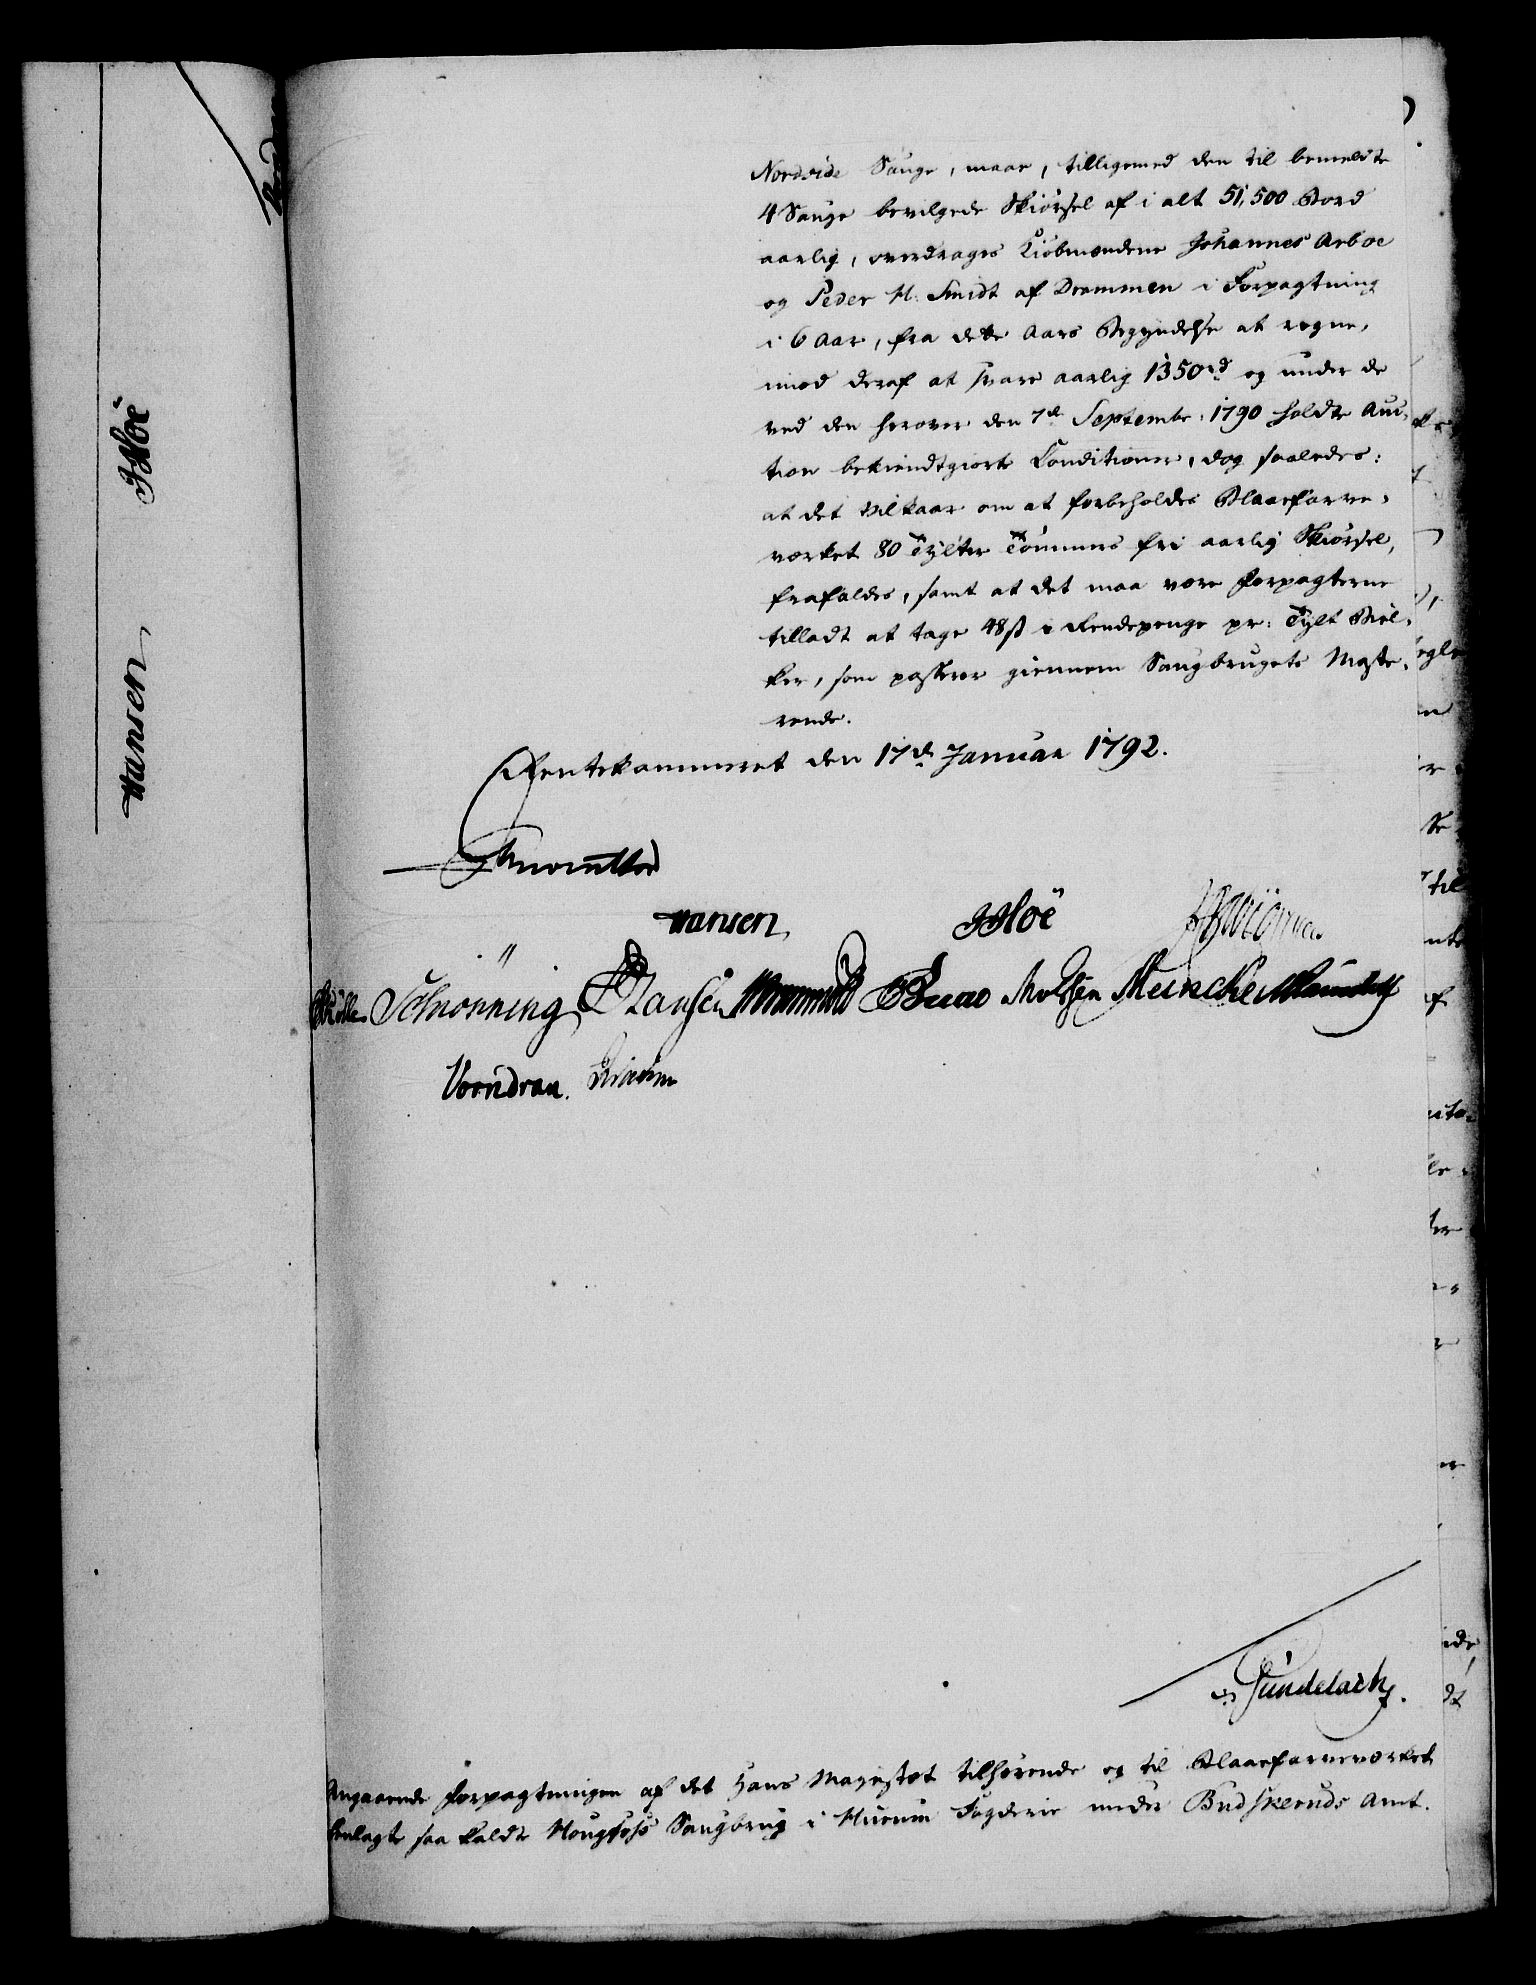 Nordside Sauge, maae, tilligemed den til bemeldte
4 Sauge bevilgede Skiørsel af i alt 51,500 Bord
aarlig, overdrages Kiøbmændene Johannes Arboe
og Peder H. Smidt af Drammen i Forpagtning
i 6 Aar, fra dette Aars Begyndelse at regne,
imod deraf at svare aarlig 1350 rd og under de
ved den herover den 7de Septembr: 1790 holdte Auc-
tion bekiendtgiorte Conditioner, dog saaledes:
at det Vilkaar om at forbeholdes Blaafarve-
værket 80 Tylter Tømmers fri aarlig Skiørsel,
frafaldes, samt at det maa være Forpagterne
tilladt at tage 48 ß i Rendepenge pr: Tylt Biel-
ker, som passerer giennem Saugbrugets Maste-
rende.
Rentekammeret den 17de Januar 1792.
Hansen JHoë
Schiønning Hansen Meincke
Voendran.
Gundelach.
Angaaende Forpagtningen af det Hans Majestæt tilhørende og til Blaafarveværket
henlagte saa kaldte Hougfoss Saugbrug i Buskeruds Fogderie under Budskeruds Amt.
Hansen JHoë